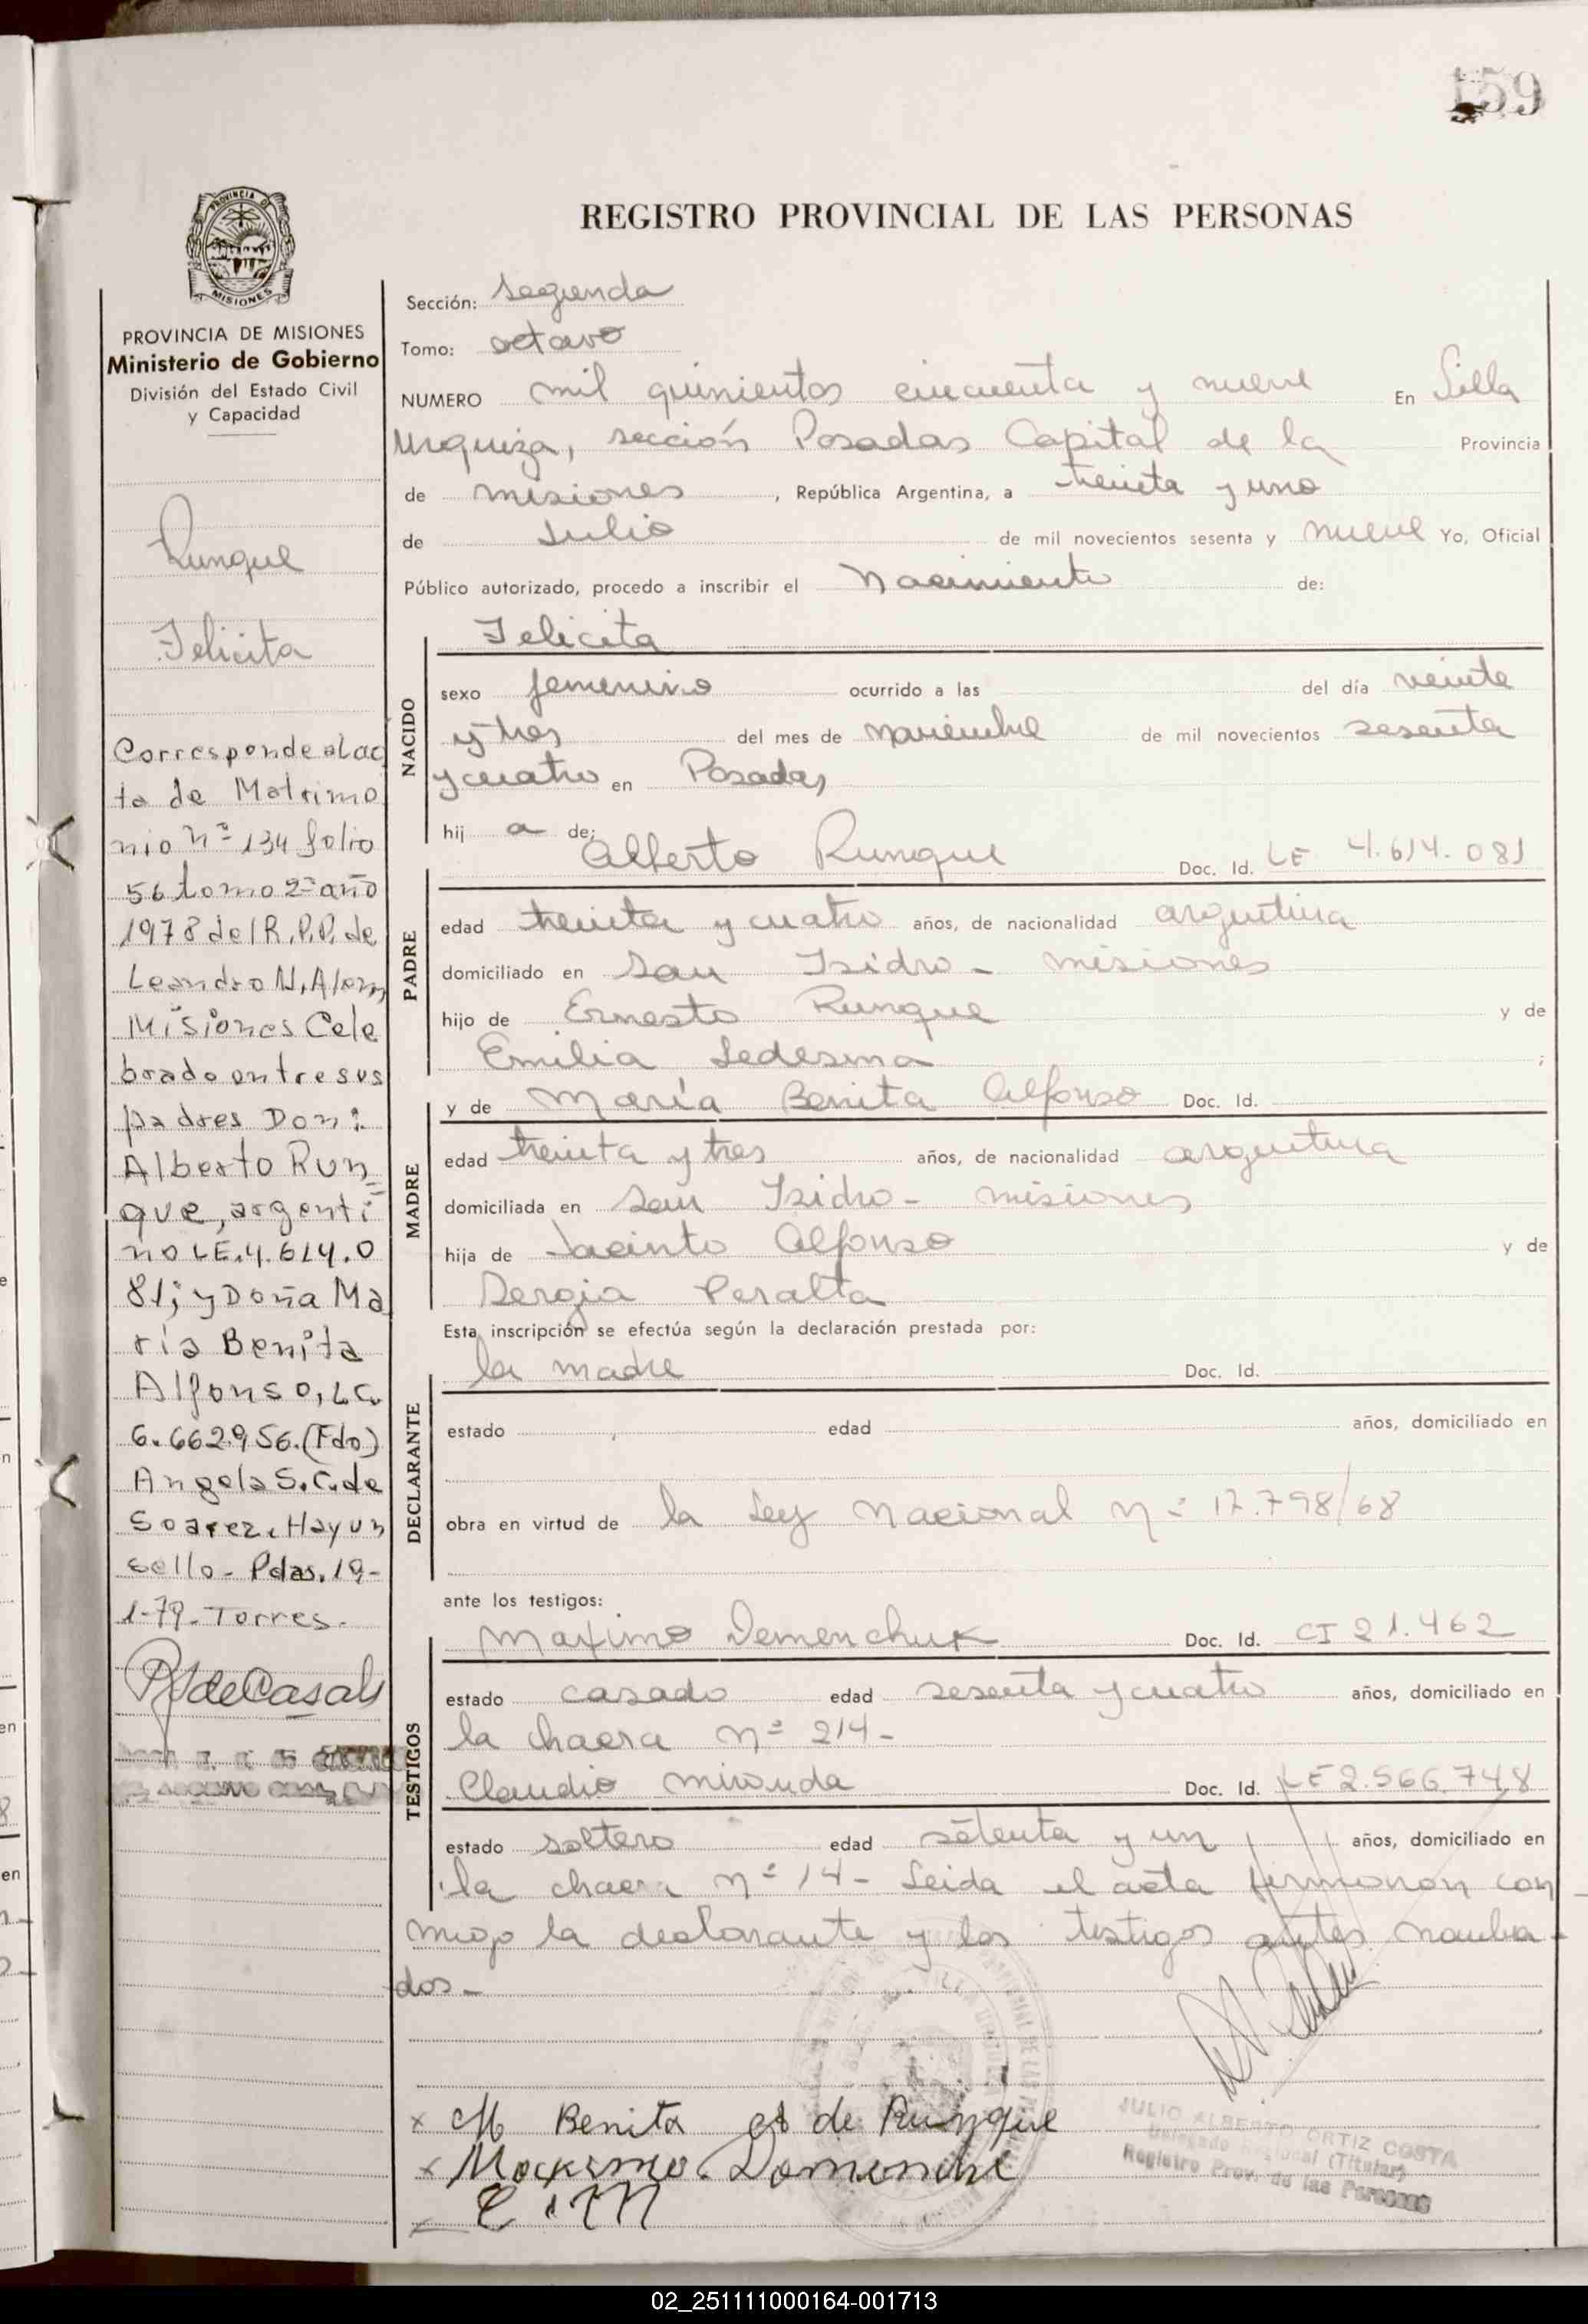 159
REGISTRO PROVINCIAL DE LAS PERSONAS
PROVINCIA DE MISIONES
MISIONES
PROVINCIA DE MISIONES
Ministerio de Gobierno
División del Estado Civil
y Capacidad
Runque
Felicita
Corresponde al ac
ta de Matrimo
nio nº 134 folio
56 tomo 2º año
1978 del R.P.P. de
Leandro N. Alem
Misiones Cele
brado entre sus
padres Don:
Alberto Run
que, argenti
no LE.4.614.0
81; y Doña Ma
ría Benita
Alfonso, LC.
6.662.956.(Fdo)
Angela S.C. de
Soarez. Hay un
sello - Pdas. 19-
1-79. Torres.
deCasals
Sección: segunda
Tomo: octavo
NUMERO mil quinientos cincuenta y nueve En Villa
Urquiza, sección Posadas Capital de la Provincia
de misiones, República Argentina, a treinta y uno
de Julio de mil novecientos sesenta y nueve Yo, Oficial
Público autorizado, procedo a inscribir el Nacimiento de:
NACIDO
Felicita
sexo femenino ocurrido a las del día veinte
y tres del mes de noviembre de mil novecientos sesenta
y cuatro en Posadas
hij a de:
PADRE
Alberto Runque Doc. Id. LE 4.614.081
edad treinta y cuatro años, de nacionalidad argentina
domiciliado en San Isidro - misiones
hijo de Ernesto Runque y de
Emilia Ledesma ;
MADRE
y de María Benita Alfonso Doc. Id.
edad treinta y tres años, de nacionalidad argentina
domiciliada en San Isidro - misiones
hija de Jacinto Alfonso y de
Sergia Peralta
Esta inscripción se efectúa según la declaración prestada por:
DECLARANTE
la madre Doc. Id.
estado edad años, domiciliado en
obra en virtud de la Ley Nacional nº 17.798/68
ante los testigos:
TESTIGOS
Maximo Demenchuk Doc. Id. CI 21.462
estado casado edad sesenta y cuatro años, domiciliado en
la chacra nº 214-
Claudio miranda Doc. Id. LE 2.566.748
estado soltero edad setenta y un años, domiciliado en
la chacra nº 14- Leida el acta firmaron con
migo la declarante y los testigos antes nomba
dos-
x M Benita de Runque
x Maximo
JULIO ALBERTO ORTIZ COSTA
(Titular)
Registro Prov. de las Personas
02_251111000164-001713